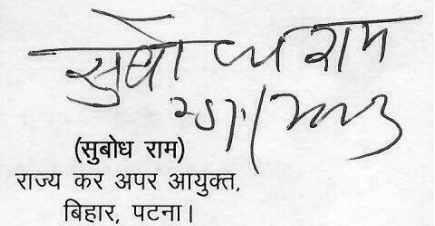 सुबोध राम
(सुबोध राम)
राज्य कर अपर आयुक्त,
बिहार, पटना।